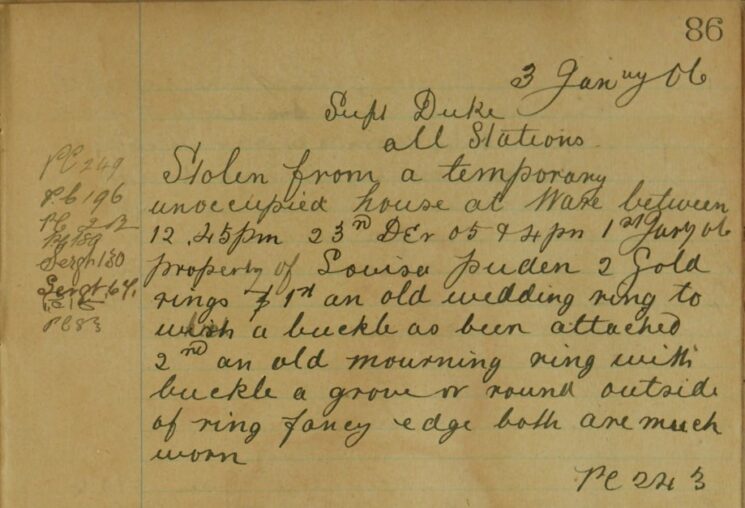 86
3 Jan uy 06
Supt Duke
all Stations
Stolen from a temporary
unoccupied house at Ware between
12.45pm 23rd DEr 05 & 4pn 1st Jany 06
property of Louisa puden 2 Gold
rings 1st an old wedding ring to
wich a buckle as been attached
2nd an old mourning ring with
buckle a grove or round outside
of ring fancy edge both are much
worn
PC 243
PC 249
PC 196
PC 189
Sergt 180
Sergt 64.
PC 83